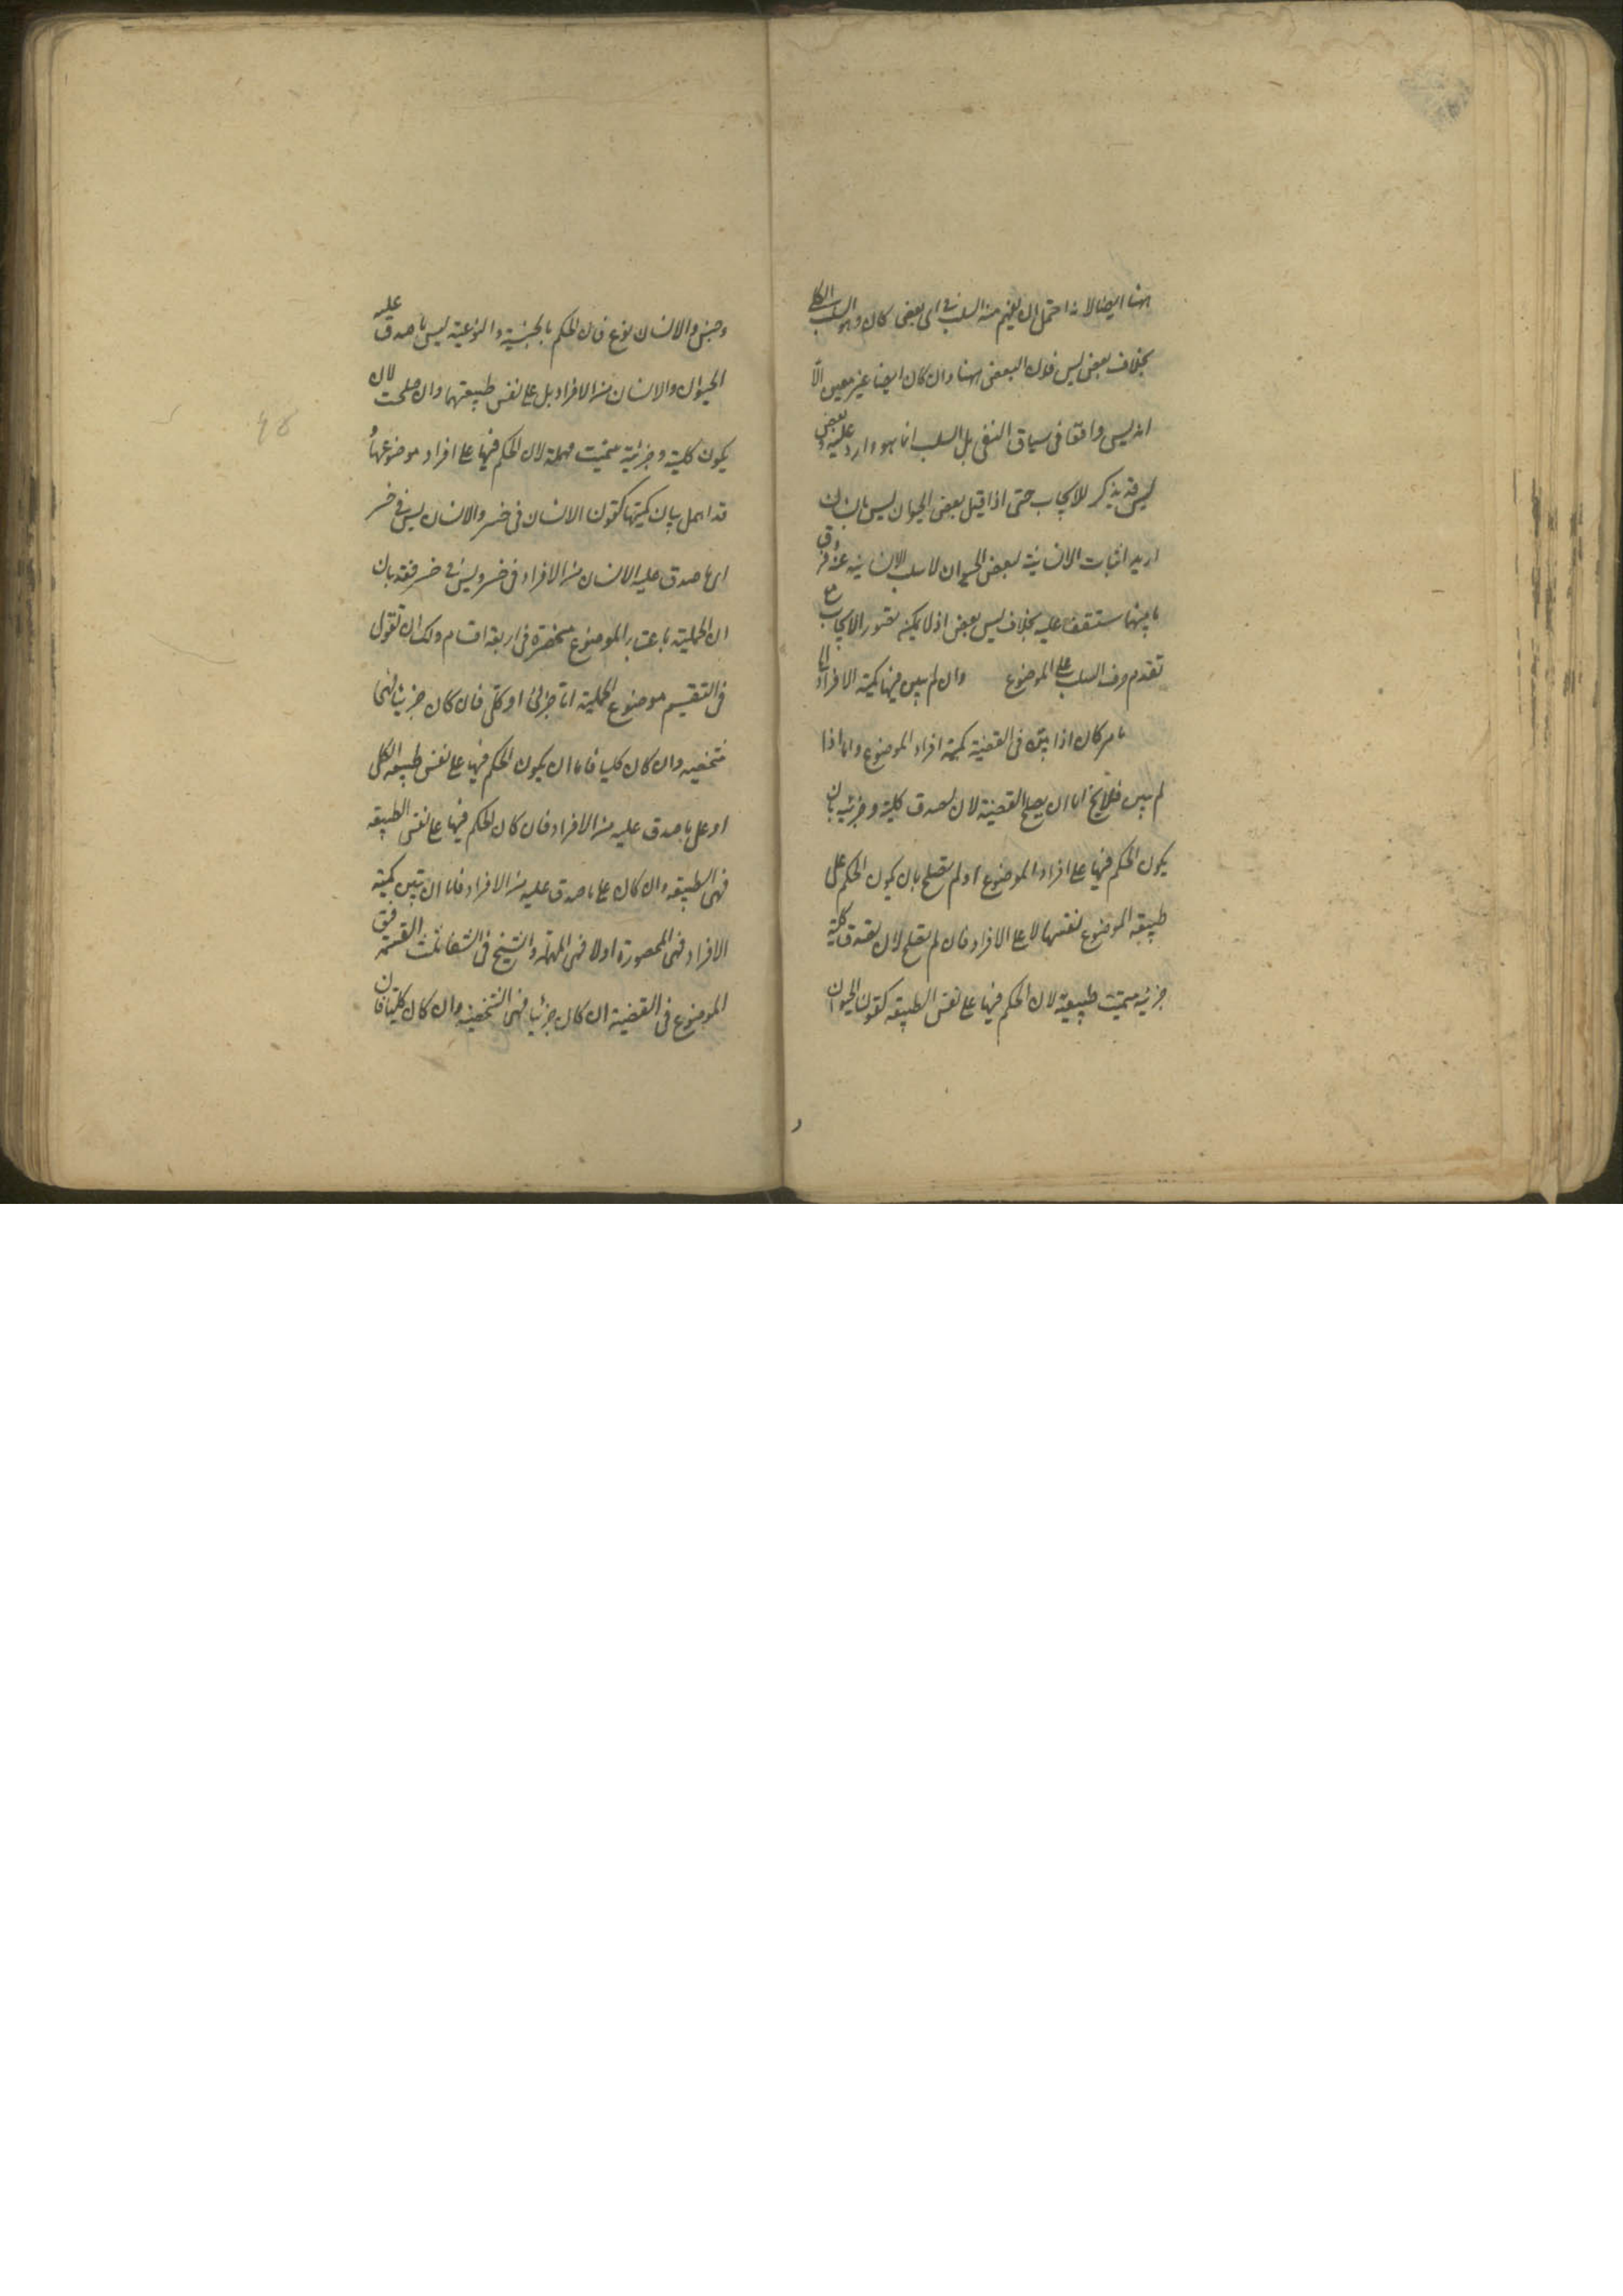 ههنا ايضا لانه احتمل ان يفهم منه السلب فى اى بعض كان وهو السلب الكلى
بخلاف بعض ليس فان البعض ههنا وان كان ايضا غير معين الا
انه ليس واقعا فى سياق النفى بل السلب انما هو وارد عليه وبعض
ليس قد يذكر للايجاب حتى اذا قيل بعض الحيوان ليس بانسان
اريد اثبات الانسانية لبعض الحيوان لا سلب الانسانية عنه وفرق
ما بينهما ستقف عليه بخلاف ليس بعض اذ لا يمكن تصور الايجاب مع
تقدم حرف السلب على الموضوع وان لم يبين فيها كمية الافراد الى
ما مر كان اذا بين فى القضية كمية افراد الموضوع واما اذا
لم يبين فلا يخ اما ان يصلح القضية لان تصدق كلية وجزئية بان
يكون الحكم فيها على افراد الموضوع او لم تصلح بان يكون الحكم على
طبيعة الموضوع نفسها لا على الافراد فان لم يصلح لان تصدق كلية
جزئية سميت طبيعية لان الحكم فيها على نفس الطبيعة كقولنا الحيوان
وجنس والانسان نوع فان الحكم بالجنسية والنوعية ليس ما صدق عليه
الحيوان والانسان من الافراد بل على نفس طبيعتهما وان صلحت لان
يكون كلية وجزئية سميت مهملة لان الحكم فيها على افراد موضوعها و
قد اهمل بيان كميتها كقولنا الانسان فى خسر والانسان ليس فى خسر
اى ما صدق عليه الانسان من الافراد فى خسر وليس فى خسر فقد بان
ان الحملية باعتبار الموضوع منحصرة فى اربعة اقسام ولك ان تقول
فى التقسيم موضوع الحملية اما جزئى او كلى فان كان جزئيا فهى
شخصيه وان كان كليا فاما ان يكون الحكم فيها على نفس طبيعة الكلى
او على ما صدق عليه من الافراد فان كان الحكم فيها على نفس الطبيعه
فهى الطبيعه وان كان على ما صدق عليه من الافراد فاما ان يتبين كمية
الافراد فهى المحصورة او لا فهى المهملة والشيخ فى الشفا ثلث القسمة فق
الموضوع فى القضية ان كان جزئيا فهى الشخصية وان كان كليا فان